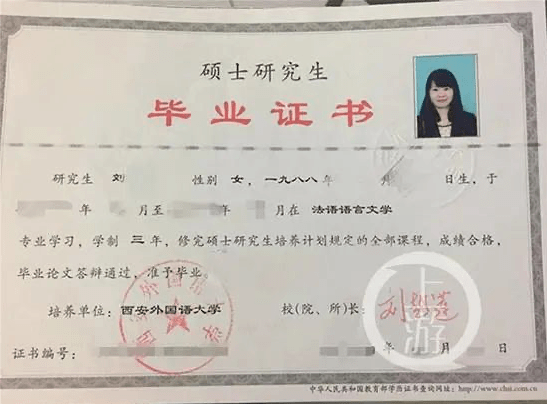 硕士研究生
毕业证书
研究生 刘 性别 女，一九八八年 月 日生，于
年 月至 年 月在 法语语言文学
专业学习，学制 三 年，修完硕士研究生培养计划规定的全部课程，成绩合格，
毕业论文答辩通过，准予毕业。
培养单位：西安外国语大学 校(院、所)长：
证书编号： 年 日
中华人民共和国教育部学历证书查询网址：http://www.chsi.com.cn
西安外国语大学
上游